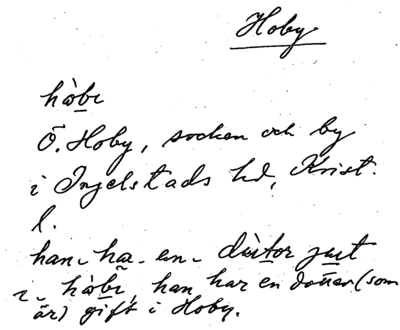 Hoby
hàbi
Ö. Hoby, socken och by
i Ingelstads hd, Krist.
l.
han- ha- en- dùtor jut
i- hàbi, han har en dotter (som
är) gift i Hoby.